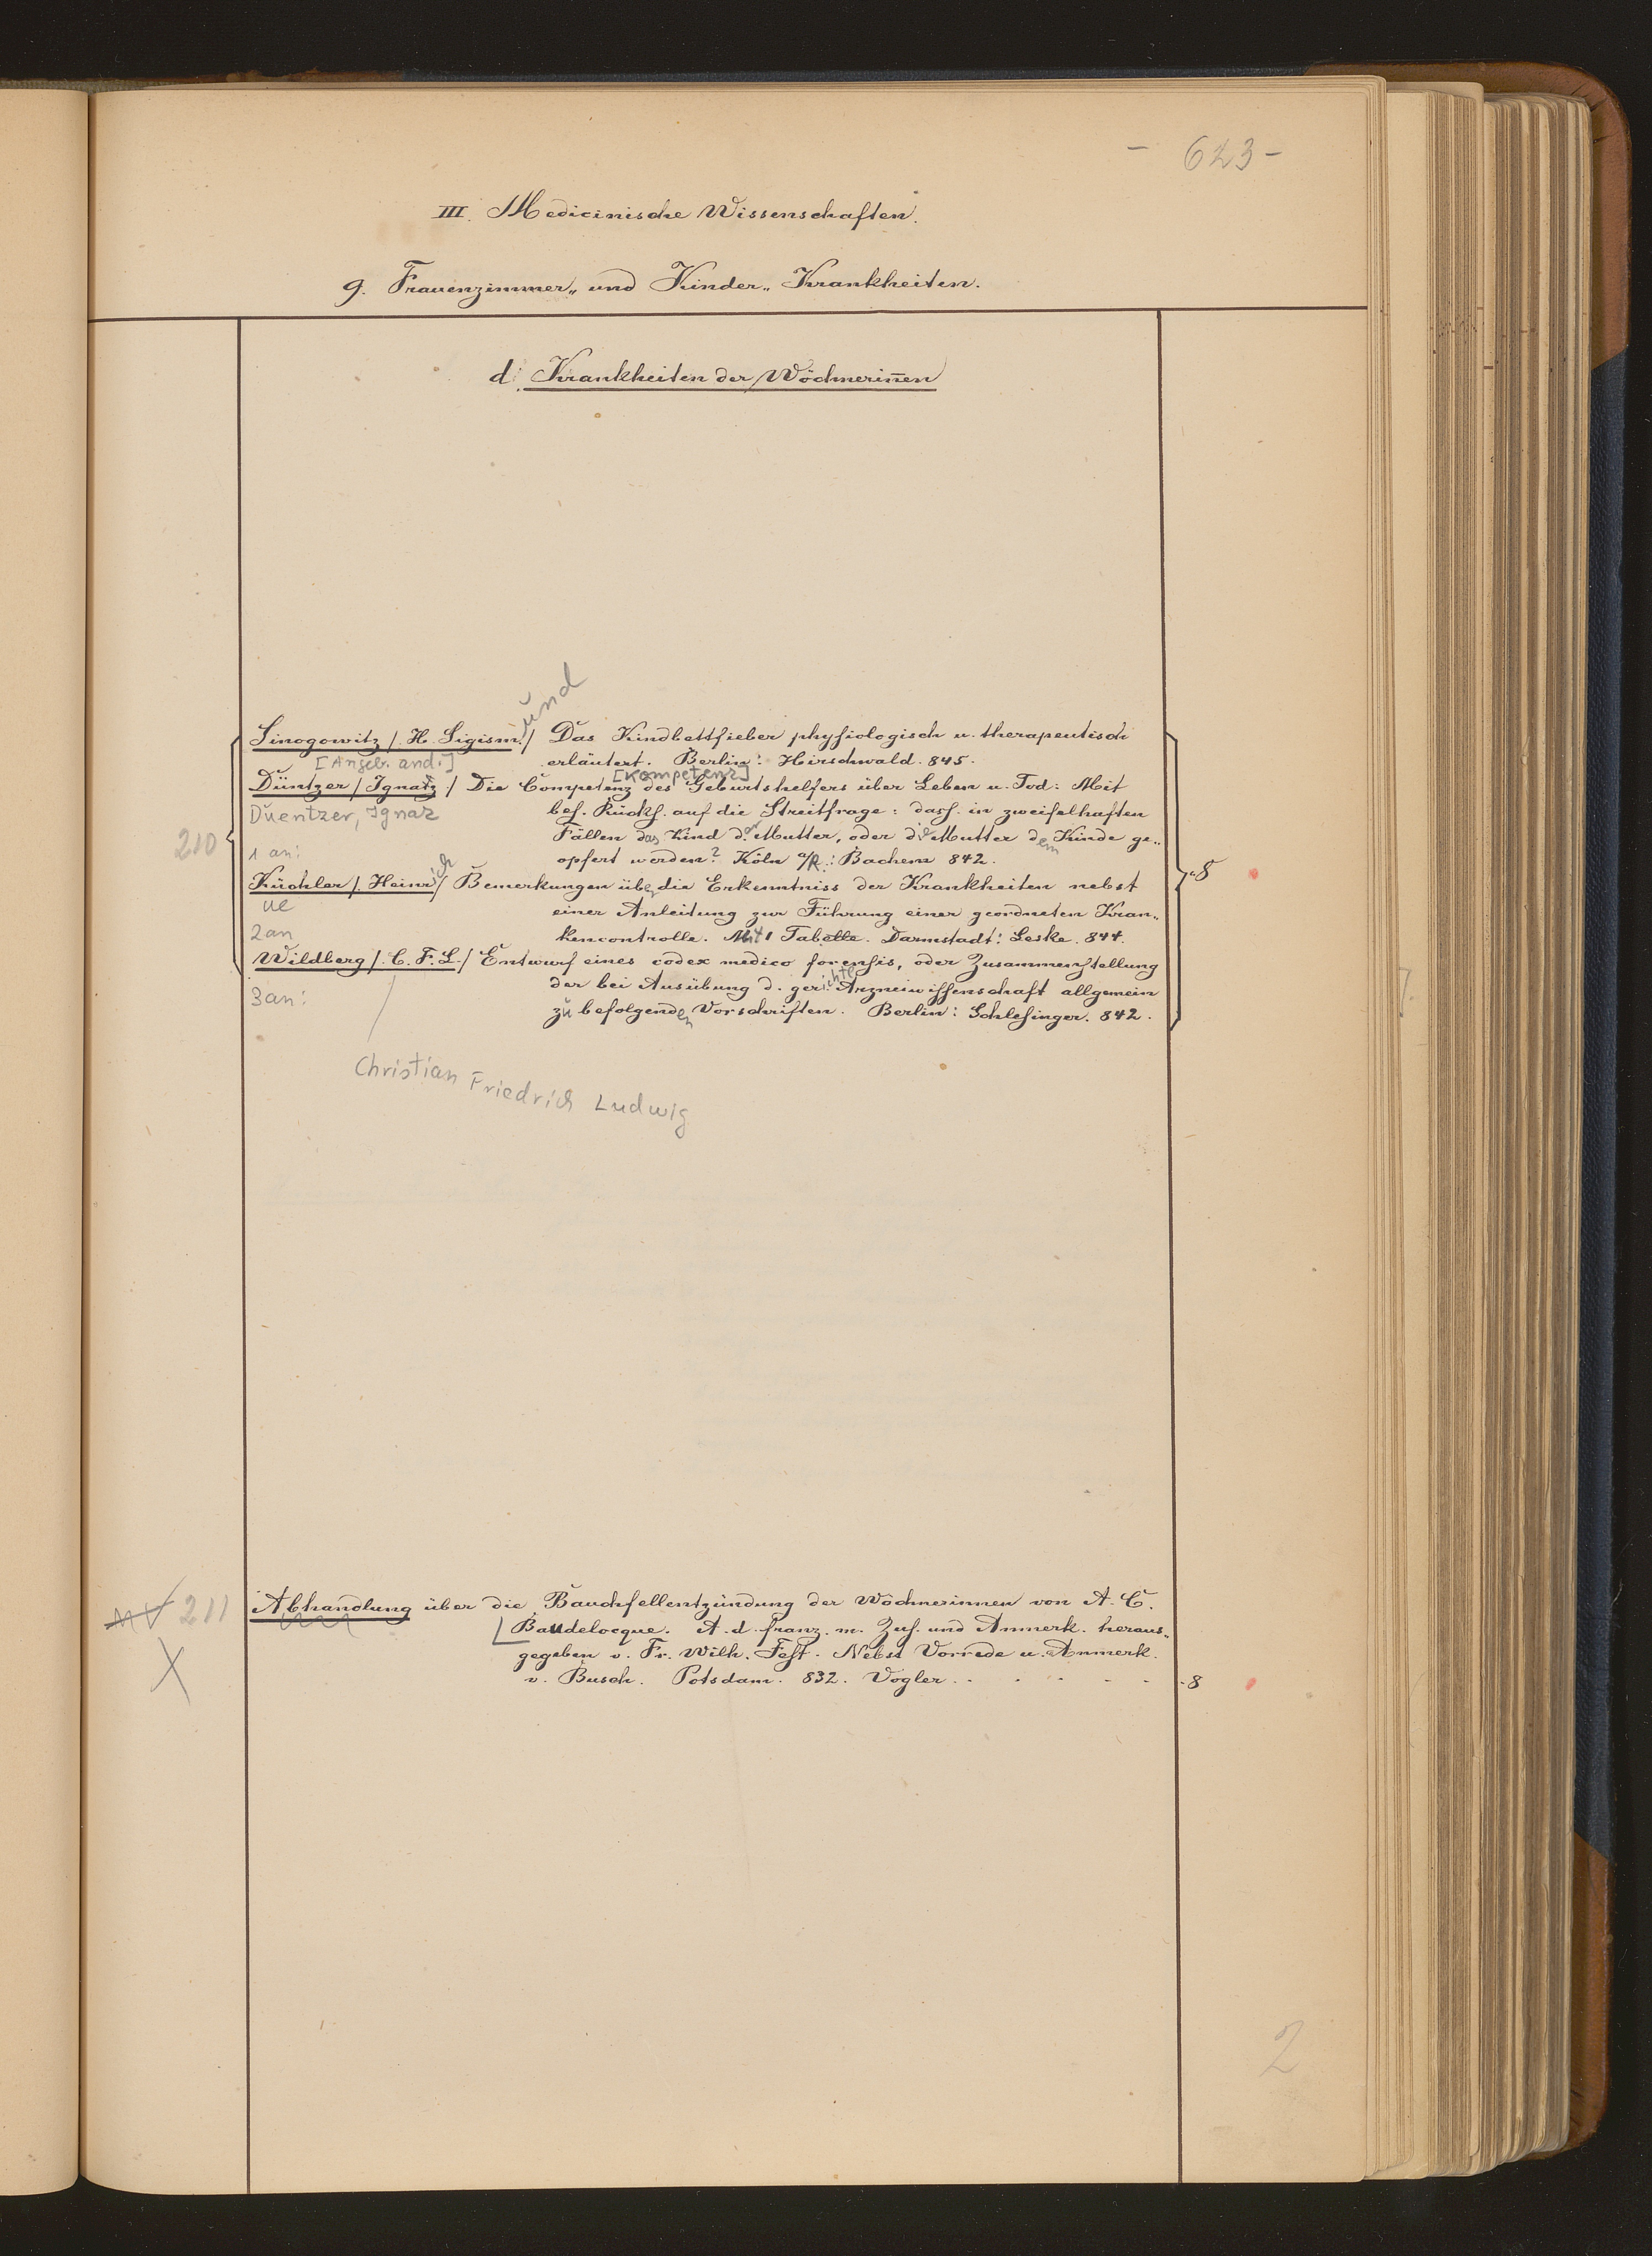 - 623 -
III. Medicinische Wissenschaften.
g. Frauenzimmer„ und Kinder„ Krankheiten.
d. Krankheiten der Wöchnerin̄en
Sinogowitz /. H. Sigism. / und Das Kindbettfieber physiologisch u. therapeutisch
[Angeb. and.] erläutert. Berlin: Hirschwald. 845.
[Kompetenz]
Düntzer / Ignatz / Die Competenz des Geburtshelfers über Leben u. Tod: Mit
Duentzer, Ignaz bes. Rücks. auf die Streitfrage: dass. in zweifelhaften
210 Fällen das Kind der Mutter, oder die Mutter dem Kinde ge„
1 an: opfert werden? Köln a/R.: Bachem 842.
Küchler /. Heinrich / Bemerkungen über die Erkenntniss der Krankheiten nebst 8
ue einer Anleitung zur Führung einer geordneten Kran„
2 an kencontrolle. Mit 1 Tabelle. Darmstadt: Leske. 844.
Wildberg /. C. F. L. / Entwurf eines codex medico forensis, oder Zusammenstellung
3 an: der bei Ausübung d. gerichtl Arzneiwissenschaft allgemein
zu befolgenden Vorschriften. Berlin: Schlesinger. 842.
Christian Friedrich Ludwig
211 Abhandlung über die Bauchfellentzündung der Wöchnerinnen von A. C.
Baudelocque. A. d. franz. m. Zus. und Anmerk. heraus„
X gegeben v. Fr. Wilh. Fest. Nebst Vorrede u. Anmerk.
v. Busch. Potsdam. 832. Vogler . . . . . . 8
2